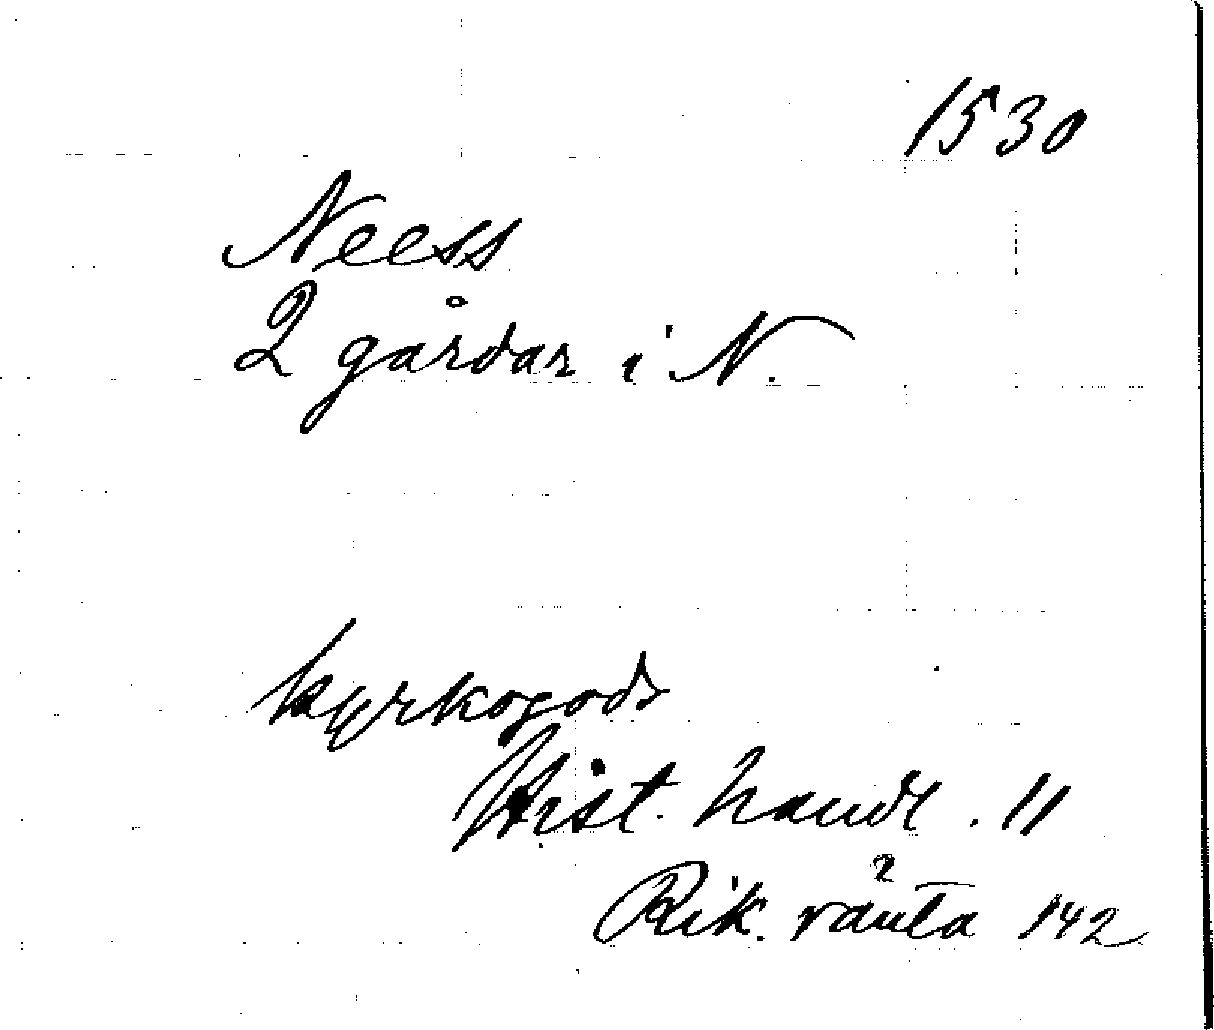 1530
Neess
2 gårdar i N.
kyrkogods
Hist. handl. 11
Rik. ränta 142